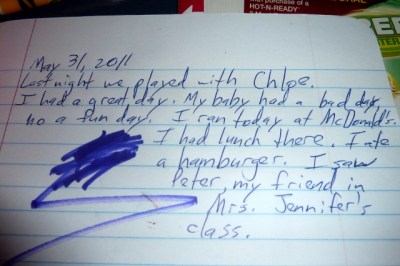 purchase of a
HOT-N-READY
May 31, 2011
Last night we played with Chloe.
I had a great day. My baby had a bad day,
no a fun day. I ran today at McDonald's.
I had lunch there. I ate
a hamburger. I saw
Peter, my friend in
Mrs. Jennifer's
class.